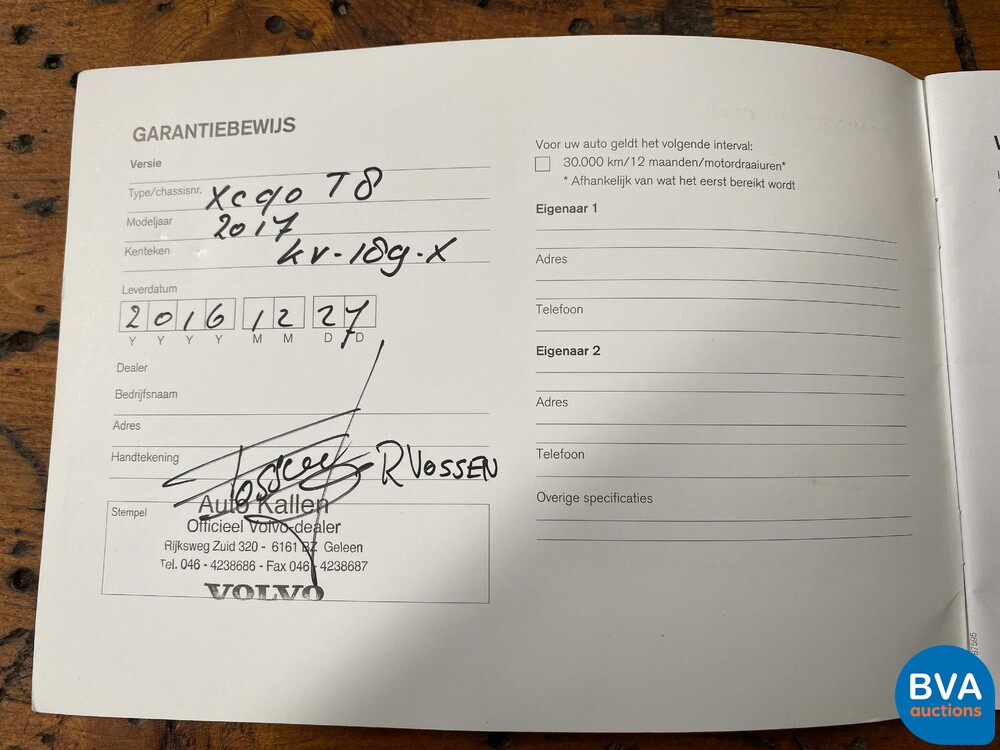 GARANTIEBEWIJS
Versie
Type/chassisnr. xc90 T8
Modeljaar 2017
Kenteken kv-189-X
Leverdatum
2016 12 27
Y Y Y Y M M D D
Dealer
Bedrijfsnaam
Adres
Handtekening R VOSSEN
Stempel
Auto Kallen
Officieel Volvo-dealer
Rijksweg Zuid 320 - 6161 BZ Geleen
Tel. 046 - 4238686 - Fax 046 - 4238687
VOLVO
Voor uw auto geldt het volgende interval:
30.000 km/12 maanden/motordraaiuren*
* Afhankelijk van wat het eerst bereikt wordt
Eigenaar 1
Adres
Telefoon
Eigenaar 2
Adres
Telefoon
Overige specificaties
BVA
auctions